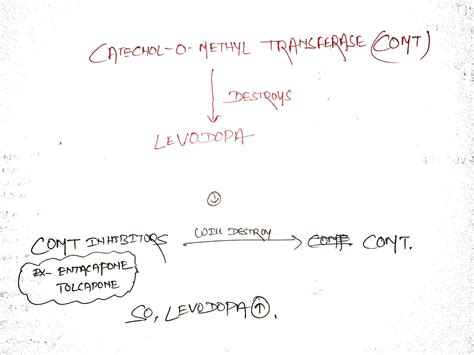 CATECHOL-O-METHYL TRANSFERASE (COMT)
DESTROYS
LEVODOPA
COMT INHIBITORS WILL DESTROY COMT COMT.
EX- ENTACAPONE
TOLCAPONE
SO, LEVODOPA ↑.